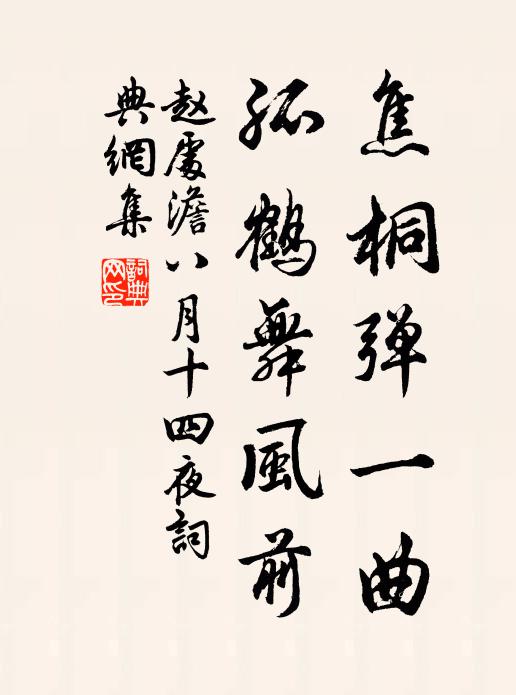 焦桐弹一曲
孤鹤舞風前
赵處澹八月十四夜詞
典網集
詞典
网印